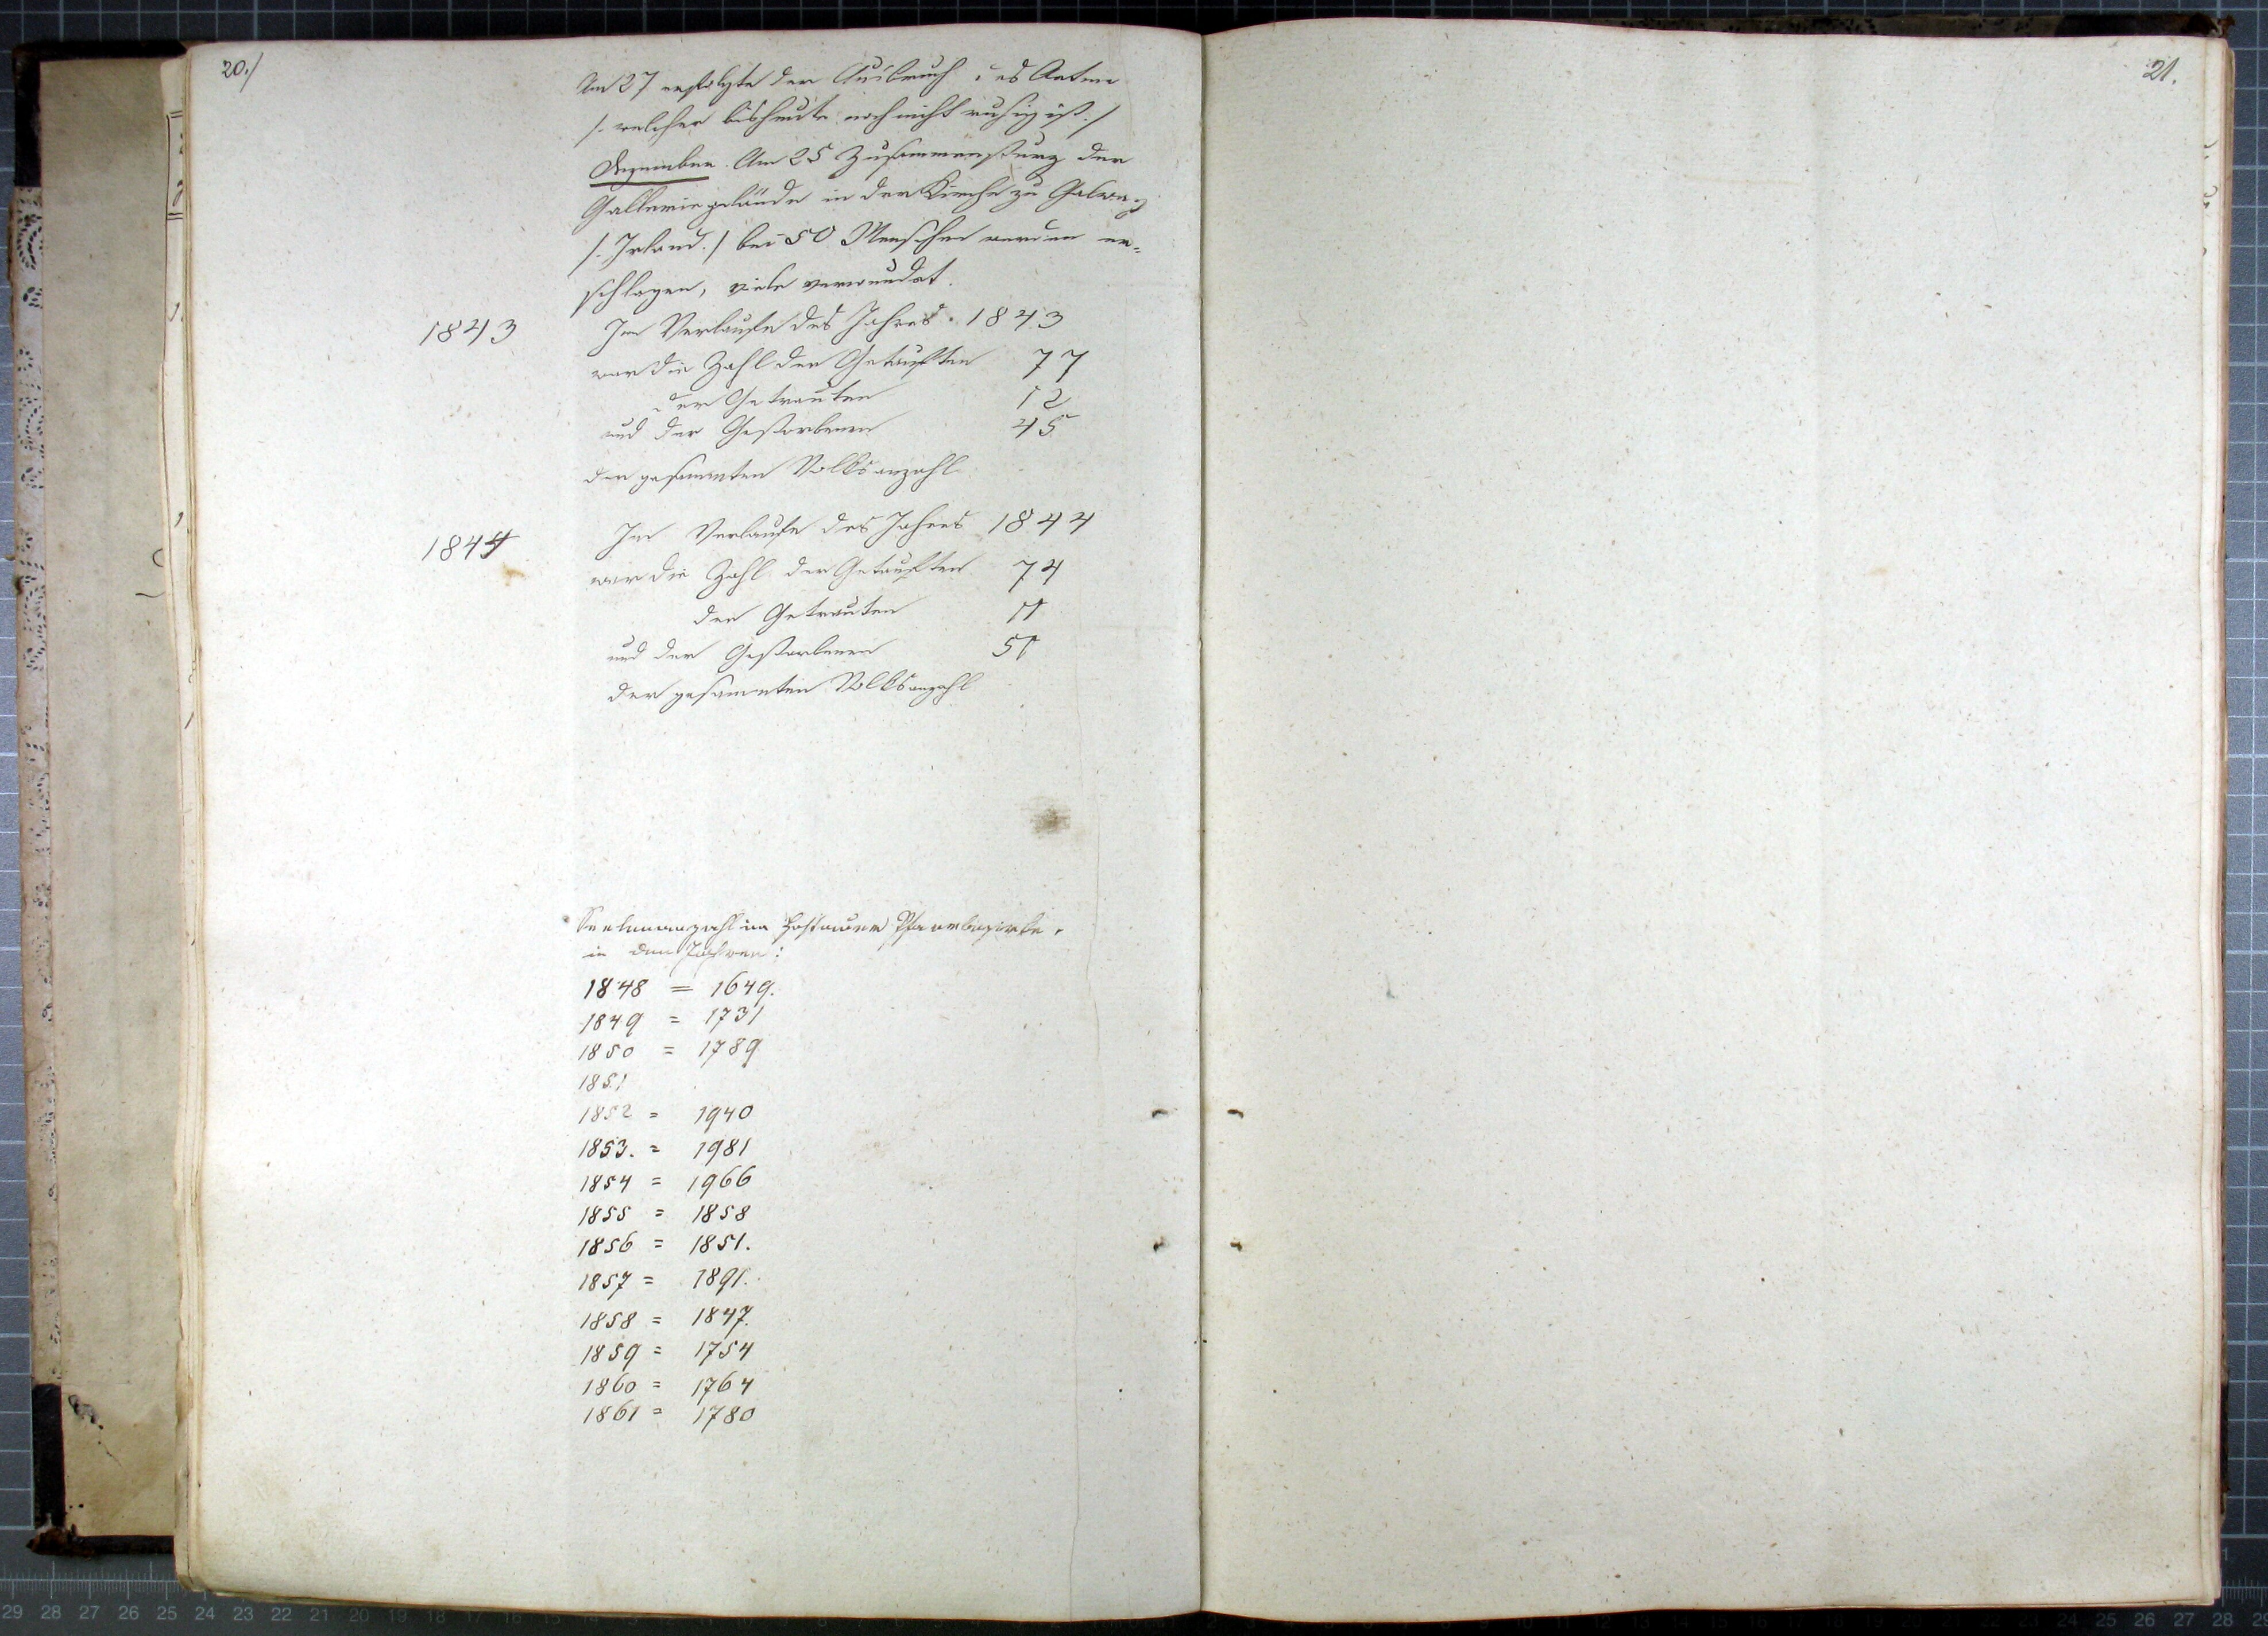 20./
Am 27 erfolgte der Ausbruch des Aetna
/. welcher bisheute noch nicht ruhig ist./
Dezember. Am 25 Zusammensturz der
Galleriegelände in der Kirche zu Galway
/. Irland./ bei 50 Menschen werden er=
schlagen, viele verwundet.
1843
Im Verlaufe des Jahres 1843
war die Zahl der Getauften 77
der Getrauten 12
und der Gestorbenen 45
der gesammten Volksanzahl
1844
Im Verlaufe des Jahres 1844
war die Zahl der Getauften 74
der Getrauten 11
und der Gestorbenen 51
der gesammten Volksanzahl
Seelenanzahl im Pfarrbezirke,
in den Jahren:
1848 = 1649.
1849 = 1731
1850 = 1789
1851
1852 = 1940
1853. = 1981
1854 = 1966
1855 = 1858
1856 = 1851.
1857 = 1891.
1858 = 1847.
1859 = 1754
1860 = 1764
1861 = 1780
21.